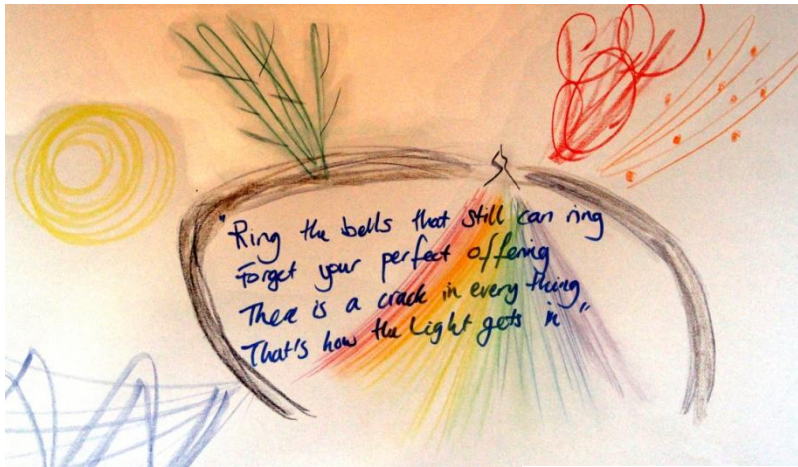 "Ring the bells that still can ring
Forget your perfect offering
There is a crack in every thing
That's how the Light gets in"